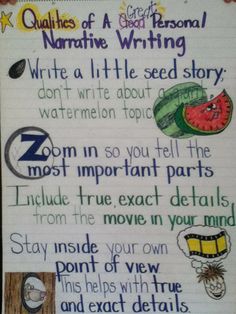 Qualities of A Good Great Personal
Narrative Writing
Write a little seed story;
don't write about a giant
watermelon topic
Zoom in so you tell the
most important parts
Include true, exact details
from the movie in your mind
Stay inside your own
point of view.
This helps with true
and exact details.